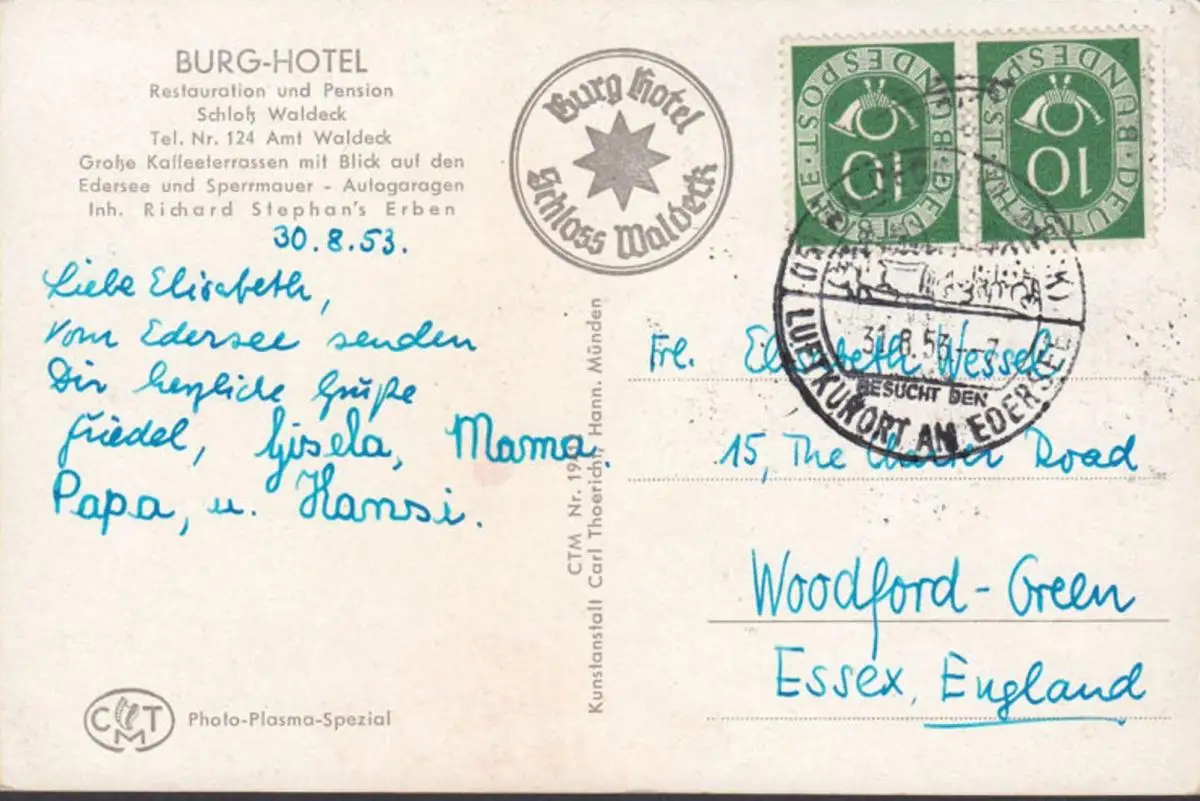 BURG-HOTEL
Restauration und Pension
Schloß Waldeck
Tel. Nr. 124 Amt Waldeck
Große Kaffeeterrassen mit Blick auf den
Edersee und Sperrmauer - Autogaragen
Inh. Richard Stephan's Erben
30.8.53.
Liebe Elisabeth,
vom Edersee senden
Dir herzliche Grüße
Friedel, Gisela, Mama,
Papa, u. Hansi.
CMT
Photo-Plasma-Spezial
Burg Hotel
Schloss Waldeck
CTM Nr.
Kunstanstalt Carl Thoericht, Hann. Münden
DEUTSCHE BUNDESPOST
10
DEUTSCHE BUNDESPOST
10
31.8.53.--7
BESUCHT DEN
LUFTKURORT AM EDERSEE
Frl. Elisabeth Wessel
15, The Road
Woodford-Green
Essex, England